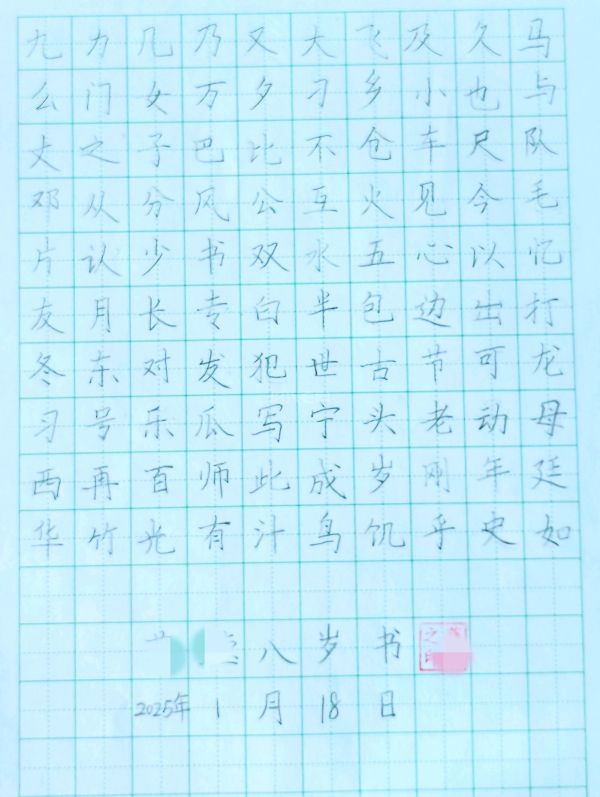 九力几乃又大飞及久马
么门女万夕刁乡小也与
丈之子巴比不仓车尺队
邓从分风公互火见今毛
片认少书双水五心以忆
友月长专白半包边出打
冬东对发犯世古节可龙
习号乐瓜写宁头老动母
西再百师此成岁刚年廷
华竹光有汁鸟饥乎史如
八岁书
2025年1月18日